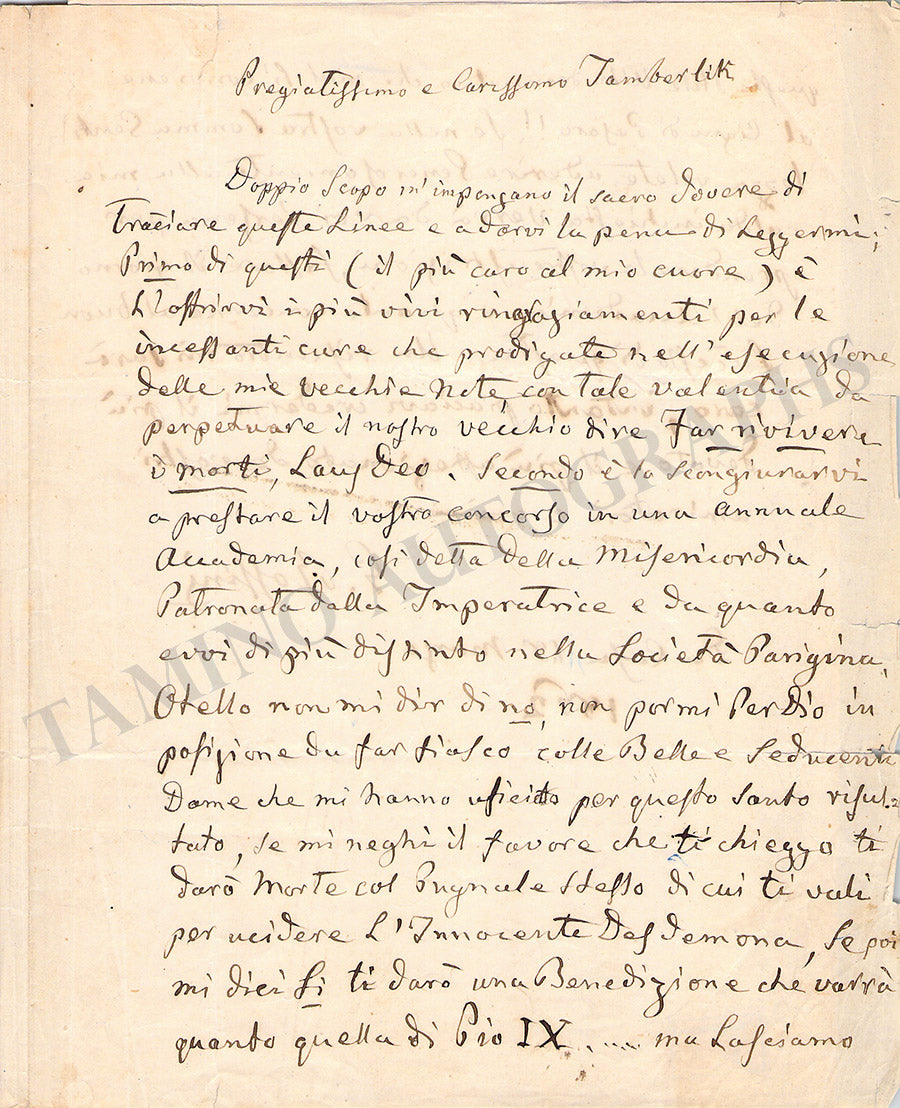 Pregiatissimo e Carissomo Tamberlik
Doppio Scopo m'impongano il sacro dovere di
Tracciare queste Linee e a darvi la pena di Leggermi;
Primo di questi (il più caro al mio cuore) è
L'offrirvi i più vivi ringraziamenti per le
incessanti cure che prodigate nell'esecuzione
delle mie vecchie Note, con tale valentia da
perpetuare il nostro vecchio dire Far rivivere
i morti, Laus Deo. Secondo è lo scongiurarvi
a prestare il vostro concorso in una annuale
Accademia, così detta della Misericordia,
Patronata dalla Imperatrice e da quanto
evvi di più distinto nella Società Parigina,
Otello non mi dir di no, non pormi Per Dio in
posizione da far fiasco colle Belle e Seducenti
Dame che mi hanno uficiato per questo santo risul-
tato, se mi neghi il favore che ti chieggo ti
darò Morte col Pugnale stesso di cui ti vali
per ucidere L'Innocente Desdemona, Se poi
mi dici Si ti darò una Benedizione che varrà
quanto quella di Pio IX ..... ma Lasciamo
TAMINO AUTOGRAPHS